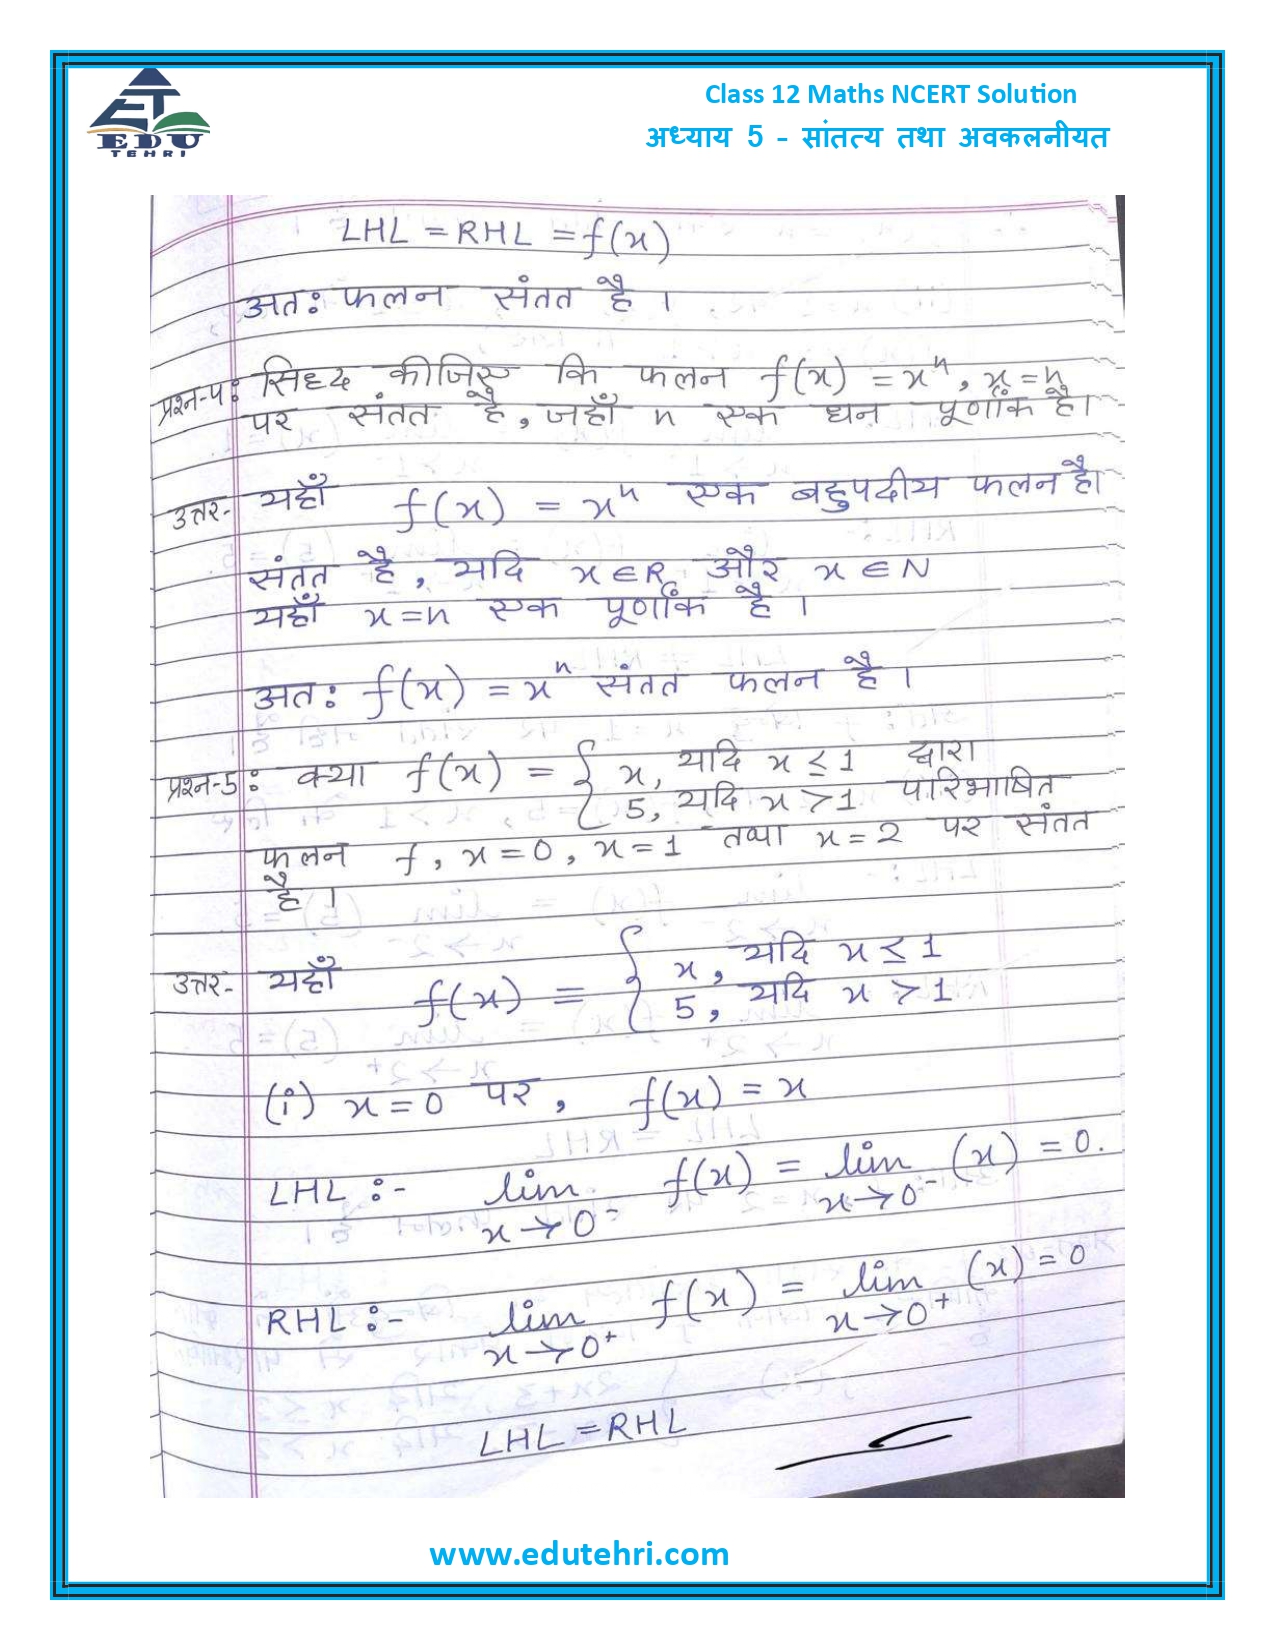 EDU
TEHRI
Class 12 Maths NCERT Solution
अध्याय 5 - सांतत्य तथा अवकलनीयत
LHL = RHL = f(x)
अतः फलन संतत है ।
प्रश्न-4: सिद्ध कीजिए कि फलन f(x) = xⁿ, x = n
पर संतत है, जहाँ n एक धन पूर्णांक है।
उत्तर- यहाँ f(x) = xⁿ एक बहुपदीय फलन है।
संतत है, यदि x ∈ R और x ∈ N
यहाँ x = n एक पूर्णांक है ।
अतः f(x) = xⁿ संतत फलन है ।
प्रश्न-5: क्या f(x) = { x, यदि x ≤ 1 द्वारा
5, यदि x > 1 पारिभाषित
फलन f, x = 0, x = 1 तथा x = 2 पर संतत
है ।
उत्तर- यहाँ f(x) = { x, यदि x ≤ 1
5, यदि x > 1
(i) x = 0 पर, f(x) = x
LHL :- lim x→0⁻ f(x) = lim x→0⁻ (x) = 0.
RHL :- lim x→0⁺ f(x) = lim x→0⁺ (x) = 0
LHL = RHL
www.edutehri.com